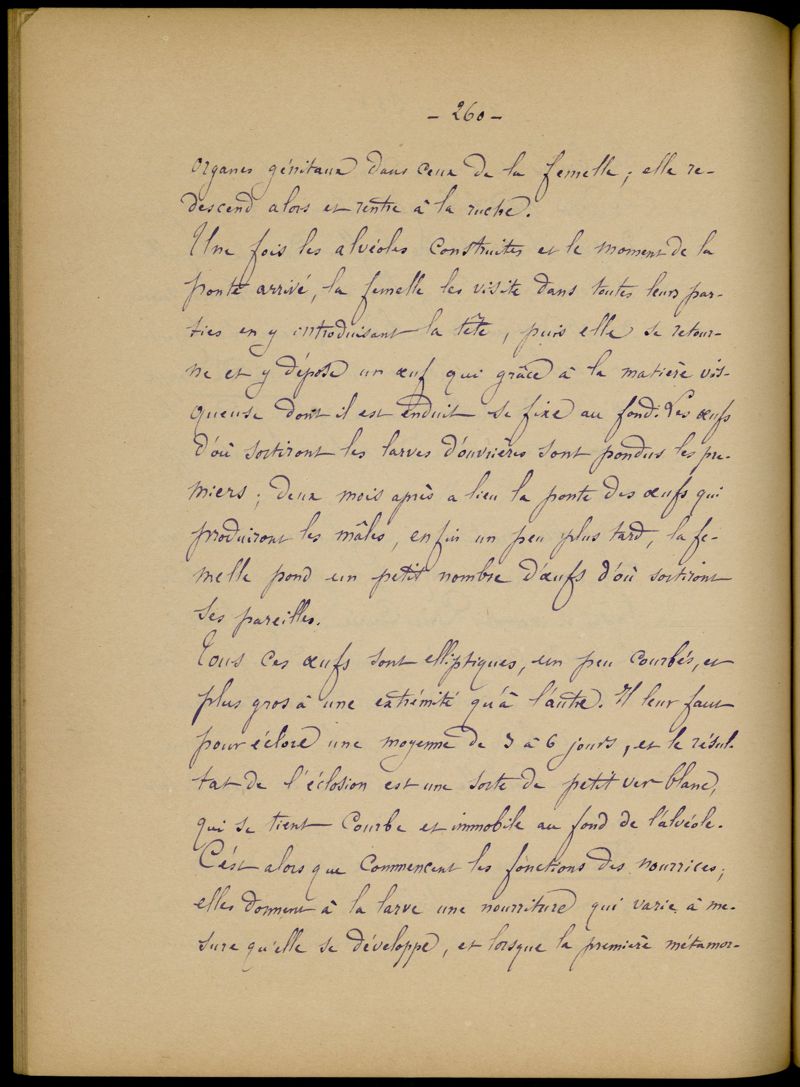 - 260 -
organes génitaux dans ceux de la femelle ; elle re-
descend alors et rentre à la ruche.
Une fois les alvéoles construites et le moment de la
ponte arrivé, la femelle les visite dans toutes leurs par-
ties en y introduisant la tête, puis elle se retour-
ne et y dépose un œuf qui grâce à la matière vis-
queuse dont il est enduit se fixe au fond. Les œufs
d'où sortiront les larves d'ouvrières sont pondus les pre-
miers ; deux mois après a lieu la ponte des œufs qui
produiront les mâles, enfin un peu plus tard, la fe-
melle pond un petit nombre d'œufs d'où sortiront
ses pareilles.
Tous ces œufs sont elliptiques, un peu courbés, et
plus gros à une extrémité qu'à l'autre. Il leur faut
pour éclore une moyenne de 3 à 6 jours, et le résul-
tat de l'éclosion est une sorte de petit ver blanc,
qui se tient courbe et immobile au fond de l'alvéole.
C'est alors que commencent les fonctions des nourrices ;
elles donnent à la larve une nourriture qui varie à me-
sure qu'elle se développe, et lorsque la première métamor-